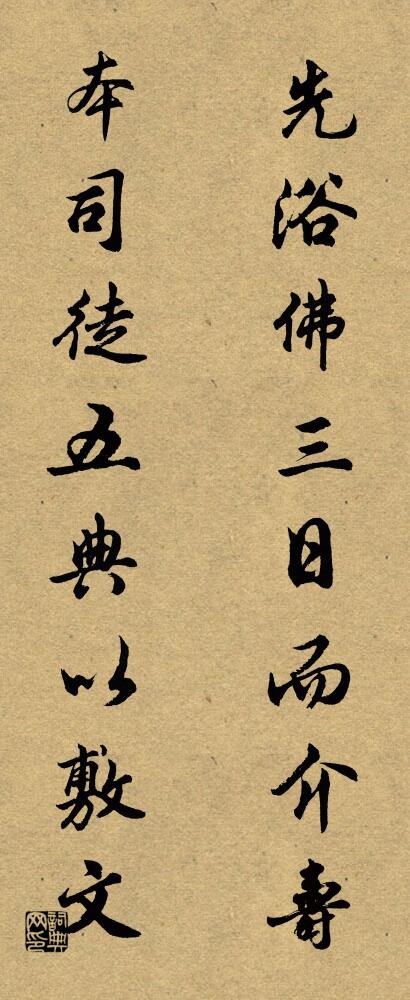 先浴佛三日而介壽
本司徒五典以敷文
詞典网印